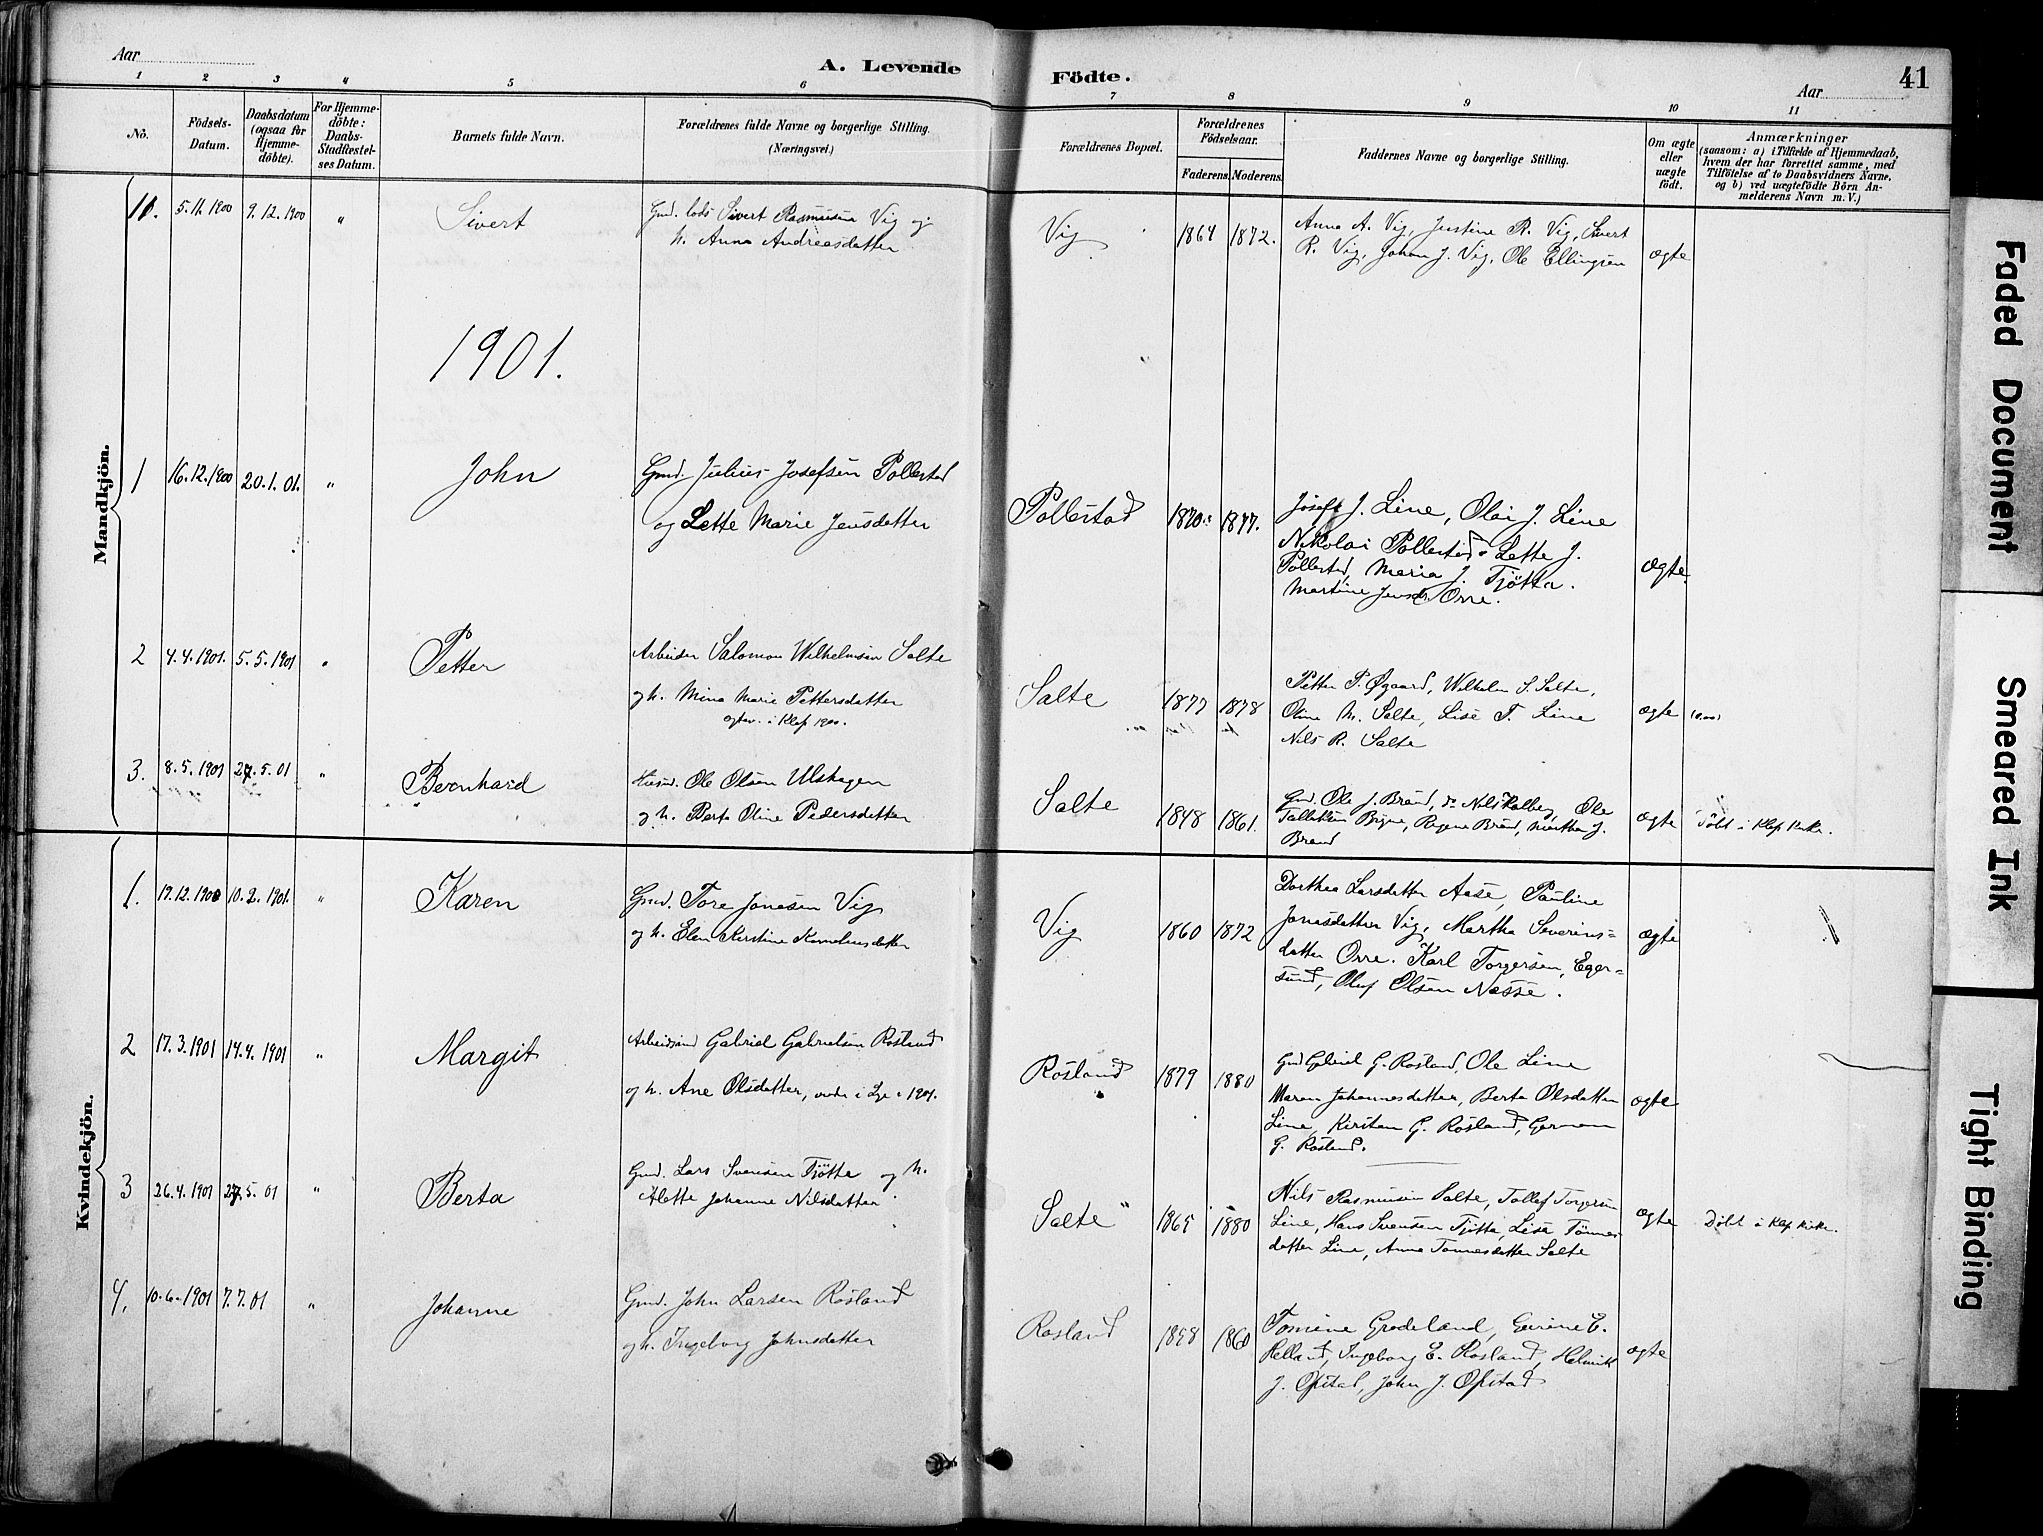 Aar
A. Levende Födte.
Aar
41
1 2 3 4 5 6 7 8 9 10 11
No.
Födsels-Datum.
Daabsdatum (ogsaa for Hjemme-döbte).
For Hjemme-döbte: Daabs-Stadfæstelses Datum.
Barnets fulde Navn.
Forældrenes fulde Navne og borgerlige Stilling.
(Næringsvei.)
Forældrenes Bopæl.
Forældrenes Födselsaar.
Faderens. Moderens.
Faddernes Navne og borgerlige Stilling.
Om ægte eller uægte födt.
Anmærkninger
(saasom: a) i Tilfælde af Hjemmedaab,
hvem der har forrettet samme, med
Tilföielse af to Daabsvidners Navne,
og b) ved uægtefödte Börn An-
melderens Navn m. V.)
Mandkjön.
11. 5.11.1900 9.12.1900 " Sivert
Gmd. lods Sivert Rasmusen Vig og
h. Anna Andreasdatter
Vig 1864 1872.
Anna A. Vig, Justine R. Vig, Sivert
R. Vig, Johan J. Vig, Ole Ellingsen
ægte
1901.
1 16.12.1900 20.1.01. " John
Gmd. Julius Josefsen Pollestad
og Lette Marie Jensdatter
Pollestad 1870 1877.
Josef J. Line, Olai J. Line
Nikolai Pollestad Lette J.
Pollestad, Maria J. Tjøtta.
Martine Jensd. Orre.
ægte
2 4.4.1901. 5.5.1901 " Petter
Arbeider Salomon Wilhelmsen Salte
og h. Mina Marie Pettersdatter
egtev. i Klep 1900.
Salte 1877 1878
Petter P. Øgaard, Wilhelm S. Salte,
Oline M. Salte, Lise T. Line
Nils R. Salte
ægte
3. 8.5.1901 27.5.01 " Bernhard
Husm. Ole Olsen Ulshagen
og h. Berte Oline Pedersdatter
Salte 1848 1861.
Gmd. Ole J. Braud, Nils Holberg, Ole
Tolleksen Brgne, Regine Braud, Martha J.
Braud
ægte Døbt i Klep Kirke.
Kvindekjön.
1. 17.12.1900 10.2.1901. " Karen
Gmd. Tore Jonasen Vig
og h. Elen Kirstine Korneliusdatter
Vig 1860 1872
Dorthea Larsdatter Aase, Pauline
Jonasdatter Vig, Martha Severins=
datter Orre. Karl Torgersen, Eger=
sund, Oluf Olsen Næsse.
ægte
2 17.3.1901 14.4.1901 " Margit
Arbeidsmd Gabriel Gabrielsen Rosland
og h. Ane Olsdatter, viede i Lye 1901.
Rosland 1879 1880
Gmd Gabriel G. Rosland, Ole Line
Maren Johannesdatter, Berta Olsdatter
Line, Kirsten G. Rosland, German
G. Rosland.
ægte
3 26.4.1901 27.5.01 " Berta
Gmd. Lars Svensen Tjøtta og h.
Alette Johanne Nilsdatter
Salte 1865 1880
Nils Rasmusen Salte, Tollef Torgersen
Line, Hans Svensen Tjøtta, Lisa Tønnes
datter Line, Anna Tønnesdatter Salte
ægte Døbt i Klep Kirke.
4. 10.6.1901 7.7.01 " Johanne
Gmd. John Larsen Rosland
og h. Ingeborg Johnsdatter
Rosland 1858 1860
Tomine Grødeland, Gurine E.
Helland, Ingeborg E. Rosland, Helmik
J. Opstad, John J. Opstad
ægte
Faded Document
Smeared Ink
Tight Binding